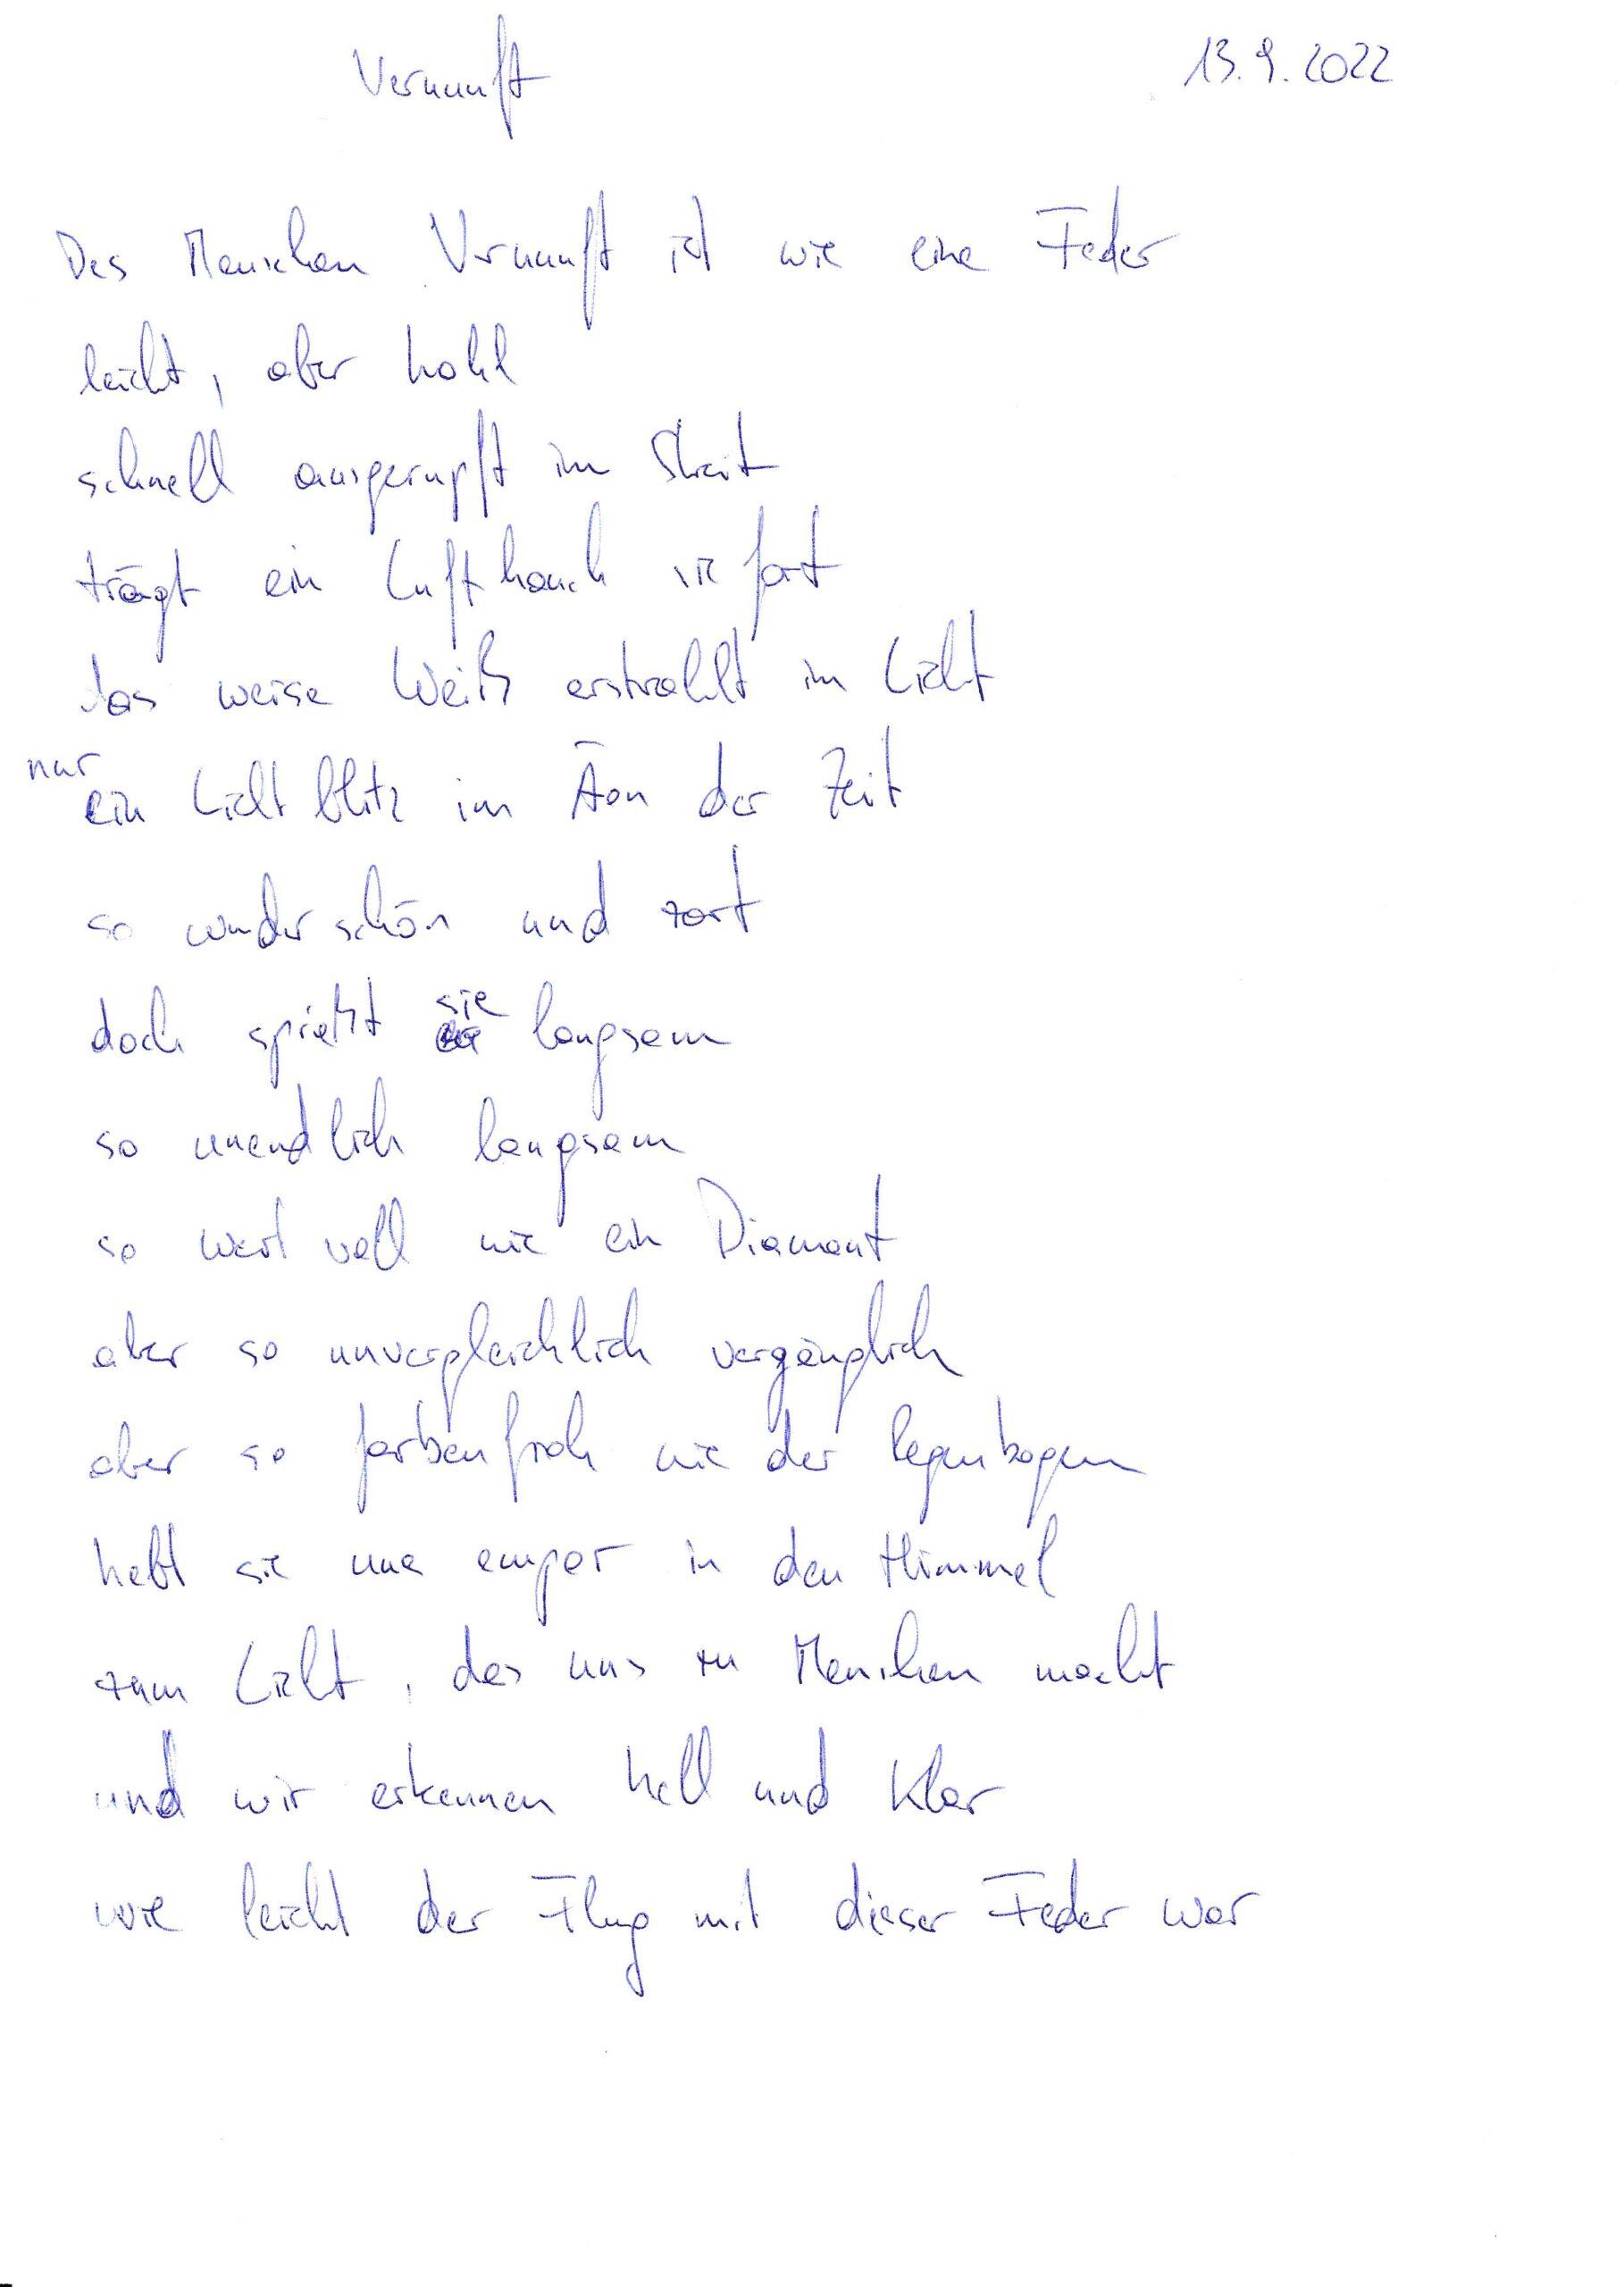 Vernunft 13.9.2022
Des Menschen Vernunft ist wie eine Feder
leicht, aber hohl
schnell ausgerupft im Streit
trägt ein Lufthauch sie fort
das weise Weiß erstrahlt im Licht
nur
ein Lichtblitz im Äon der Zeit
so wunderschön und zart
doch sprießt sie langsam
so unendlich langsam
so wertvoll wie ein Diamant
aber so unvergleichlich vergänglich
aber so farbenfroh wie der Regenbogen
hebt sie uns empor in den Himmel
zum Licht, das uns zu Menschen macht
und wir erkennen hell und klar
wie leicht der Flug mit dieser Feder war